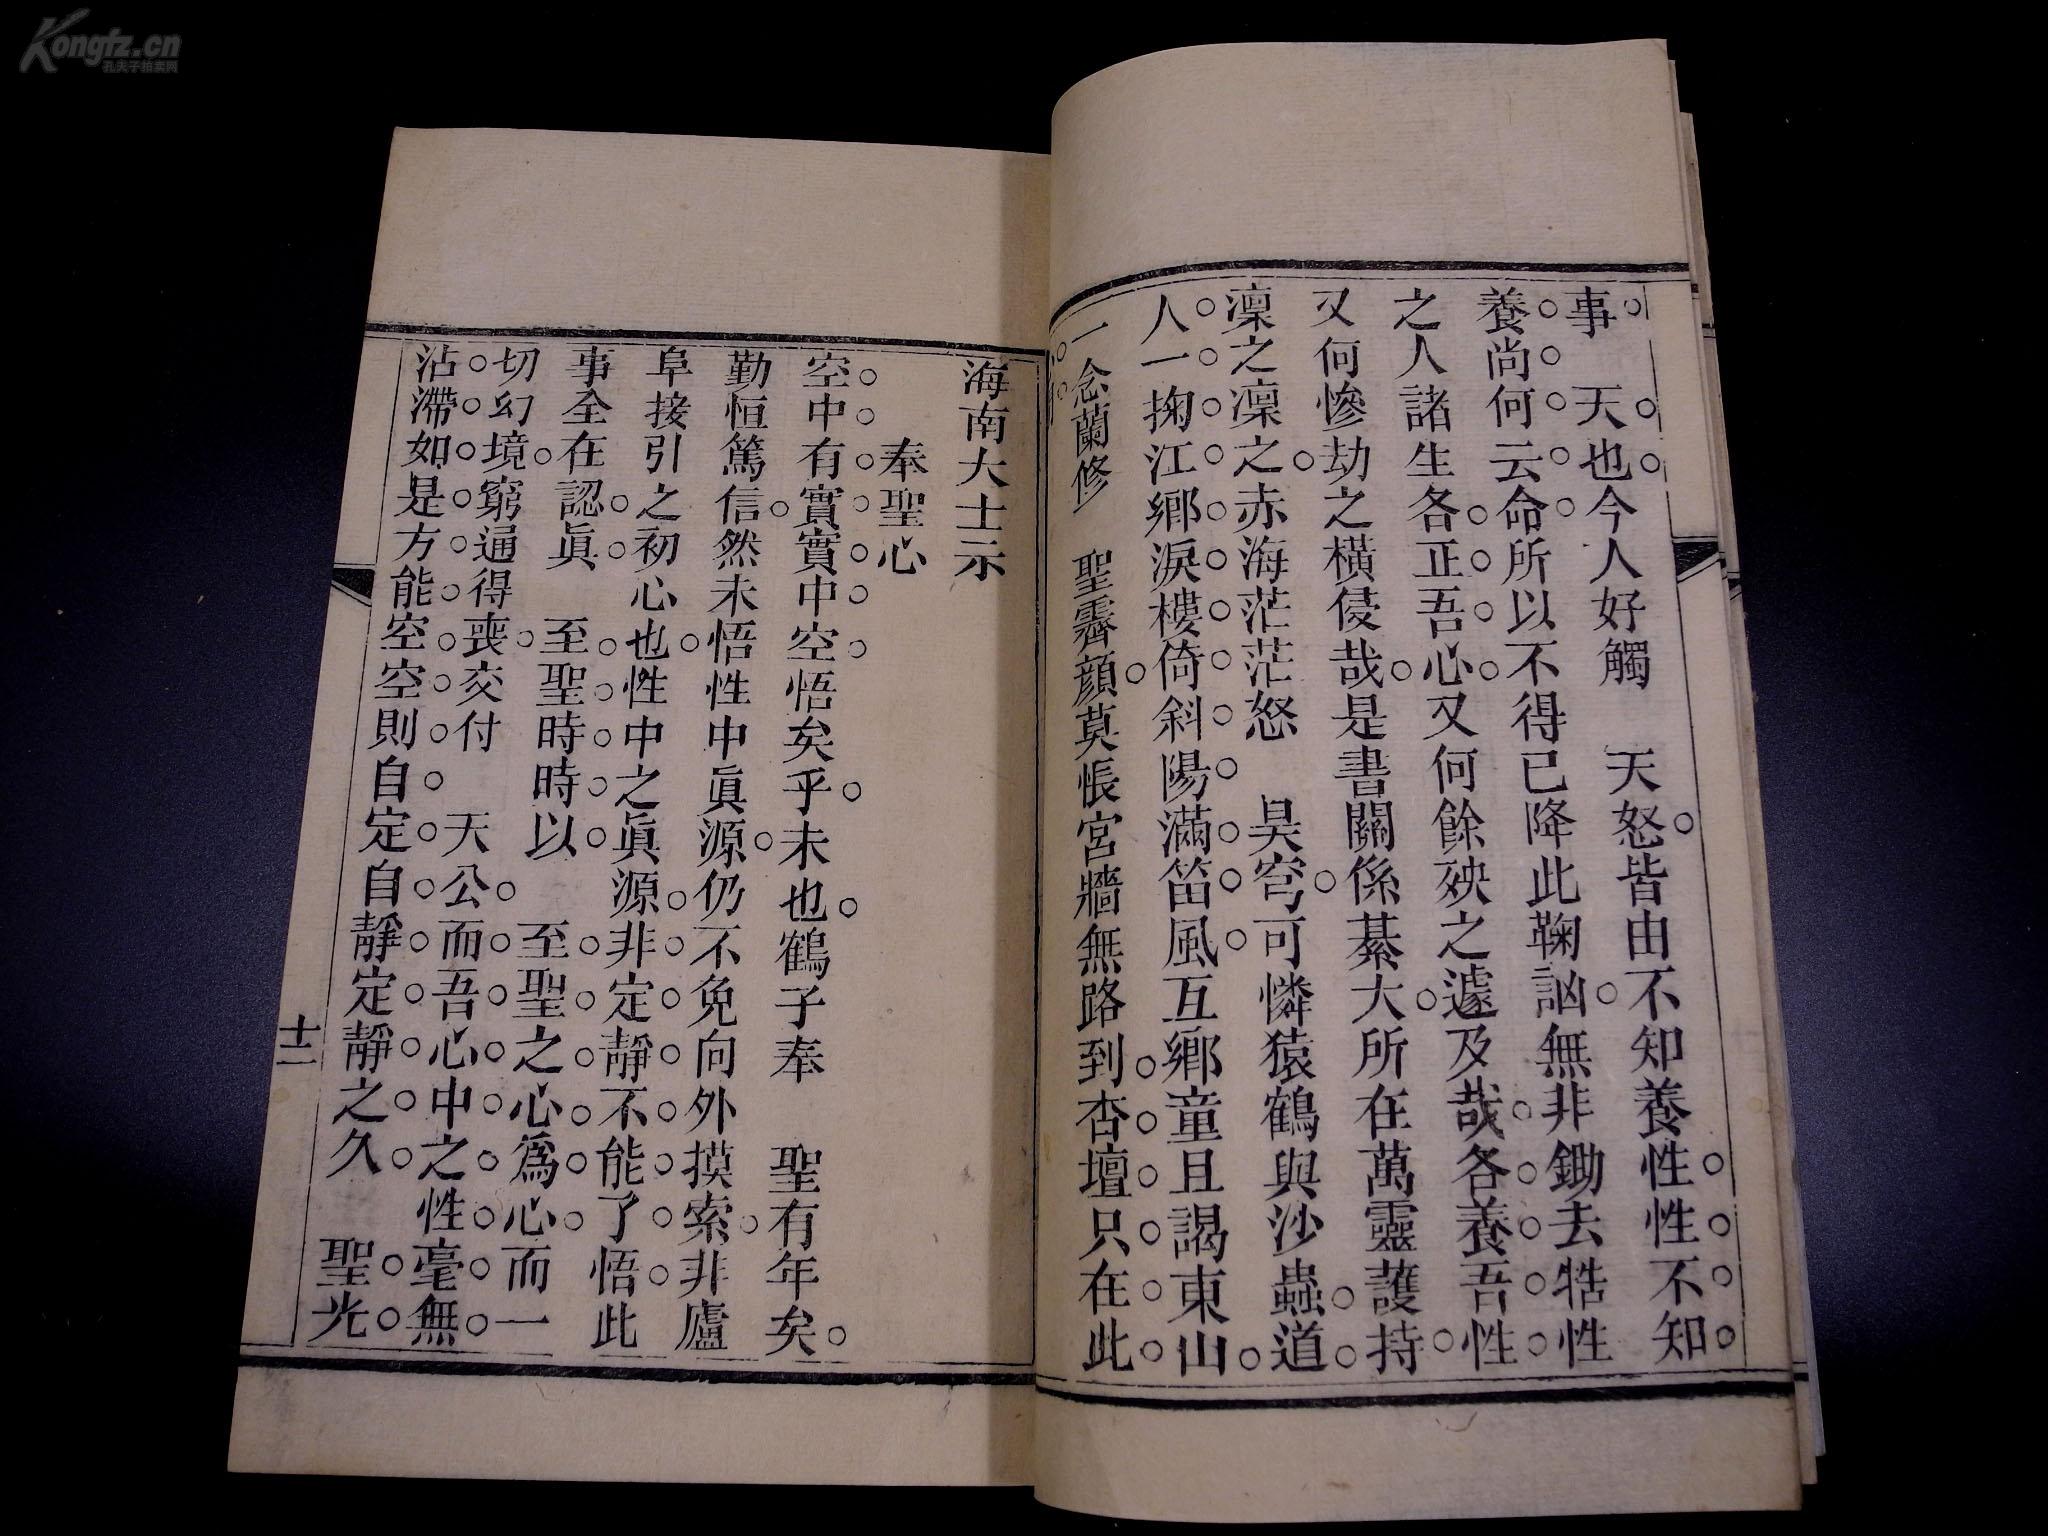 Kongfz.cn
孔夫子拍卖网
事　天也今人好觸　天怒皆由不知養性性不知
養尚何云命所以不得已降此鞠訩無非鋤去牿性
之人諸生各正吾心又何餘殃之遽及哉各養吾性
又何慘劫之橫侵哉是書關係綦大所在萬靈護持
凜之凜之赤海茫茫怒　昊穹可憐猿鶴與沙蟲道
人一掬江鄉淚樓倚斜陽滿笛風互鄉童且謁東山
一念蘭修　聖霽顏莫悵宮牆無路到杏壇只在此
海南大士示
奉聖心
空中有實實中空悟矣乎未也鶴子奉　聖有年矣
勤恒篤信然未悟性中眞源仍不免向外摸索非廬
阜接引之初心也性中之眞源非定靜不能了悟此
事全在認眞　至聖時時以　至聖之心爲心而一
切幻境窮通得喪交付　天公而吾心中之性毫無
沾滯如是方能空空則自定自靜定靜之久　聖光
十二